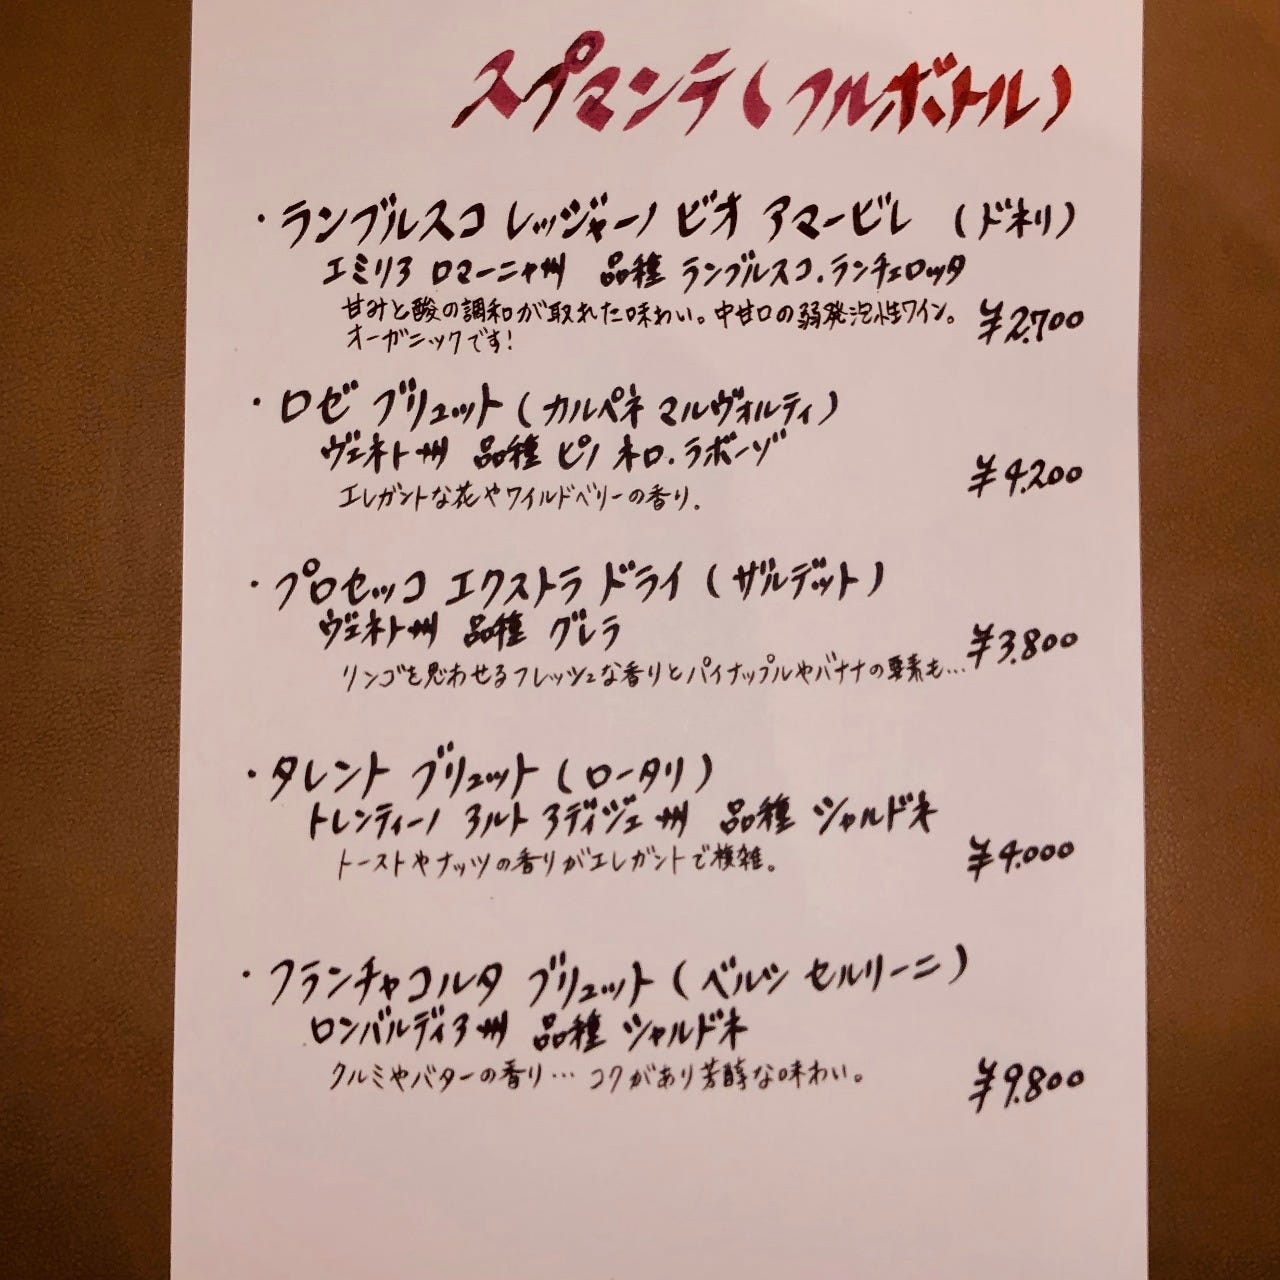 スプマンテ(フルボトル)
・ランブルスコ レッジャーノ ビオ アマービレ (ドネリ)
エミリア ロマーニャ州 品種 ランブルスコ.ランチェロッタ
甘みと酸の調和が取れた味わい。中甘口の弱発泡性ワイン。
オーガニックです!
¥2.700
・ロゼ ブリュット(カルペネ マルヴォルティ)
ヴェネト州 品種 ピノ ネロ.ラボーゾ
エレガントな花やワイルドベリーの香り.
¥4.200
・プロセッコ エクストラ ドライ(ザルデット)
ヴェネト州 品種 グレラ
リンゴを思わせるフレッシュな香りとパイナップルやバナナの要素も…
¥3.800
・タレント ブリュット(ロータリ)
トレンティーノ アルト アディジェ州 品種 シャルドネ
トーストやナッツの香りがエレガントで複雑。
¥4.000
・フランチャコルタ ブリュット(ベルッ セルリーニ)
ロンバルディア州 品種 シャルドネ
クルミやバターの香り… コクがあり芳醇な味わい。
¥9.800